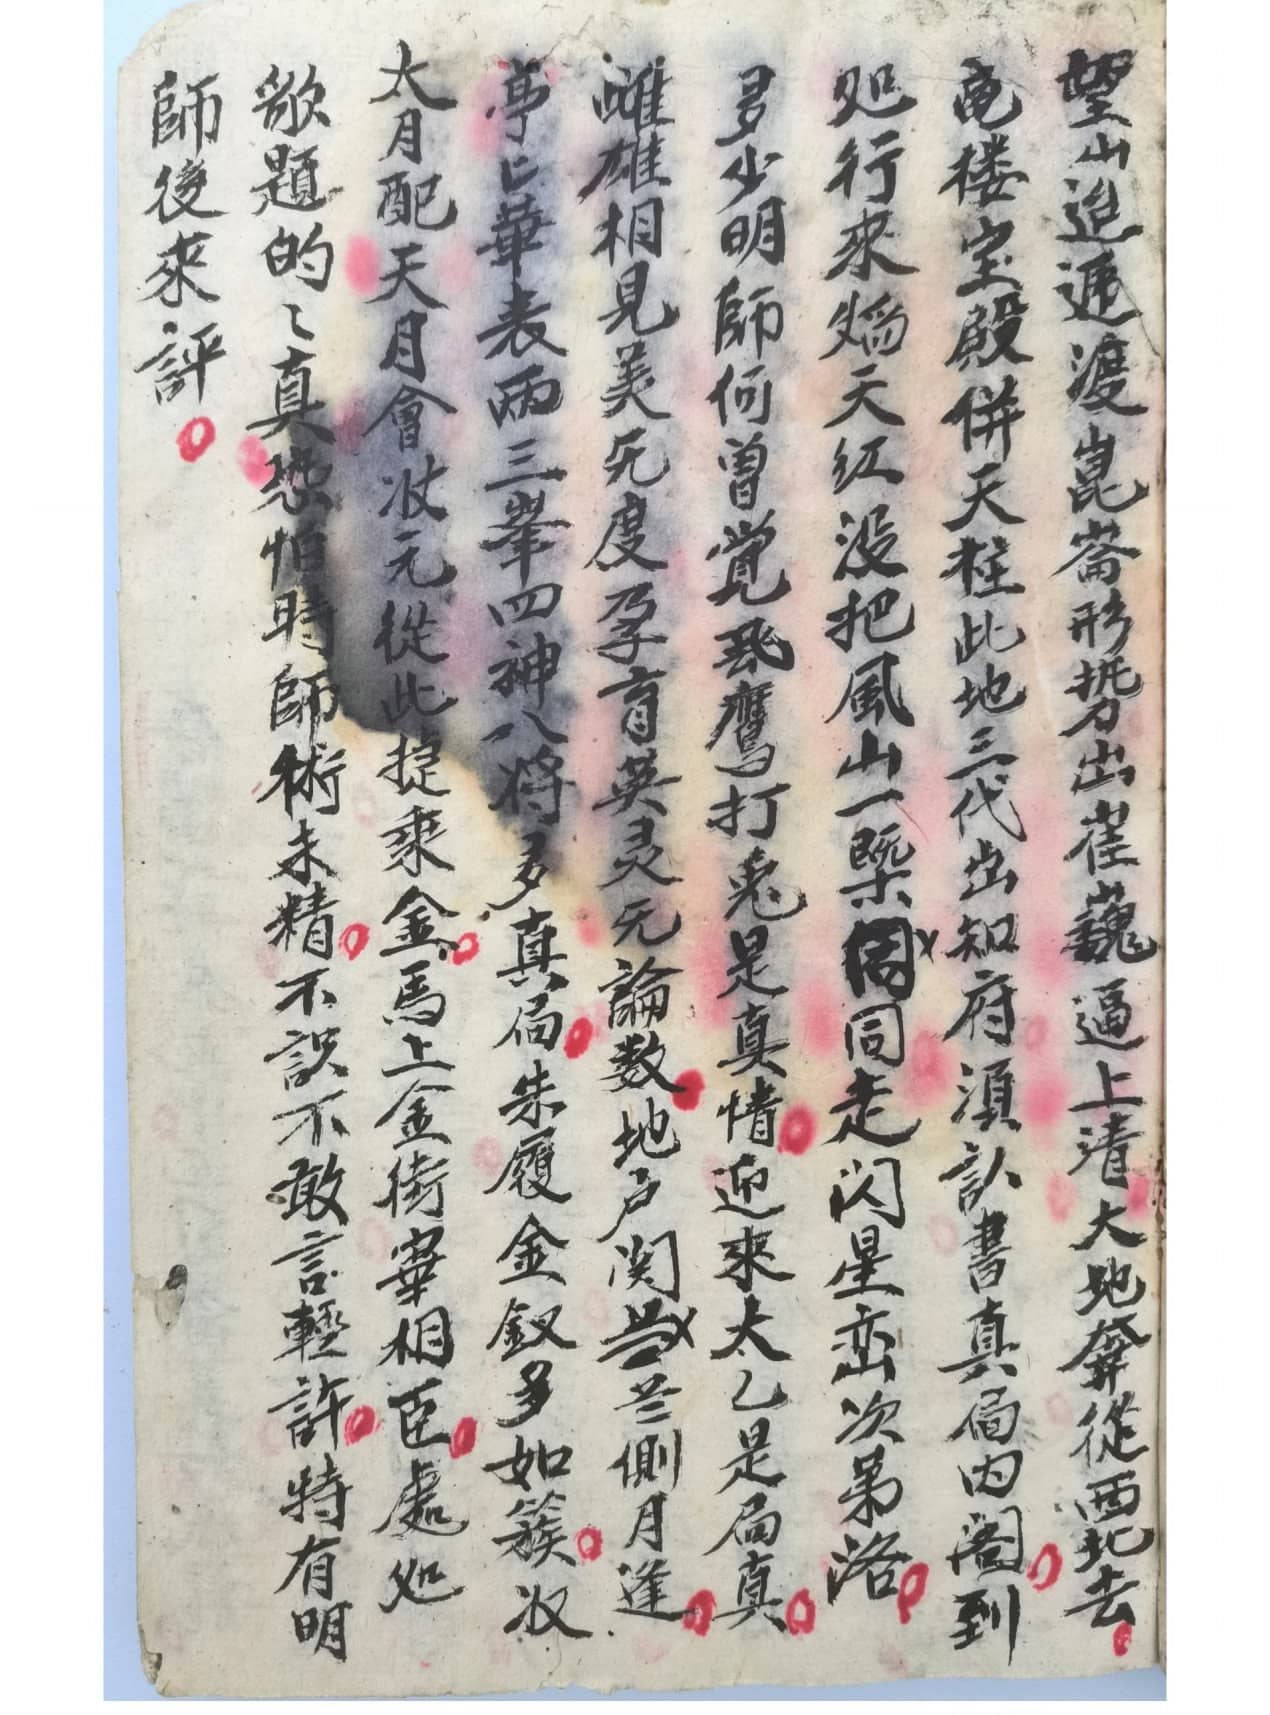 望山迢遞渡崑崙形势出崔巍逼上清大地奔從西北去
竜楼宝殿併天柱此地三代出知府須訫書真局内阁到
処行來焰天红没把風山一槩同走闪星峦次第洛
多少明師何曽覚飛鷹打兎是真情迎來太乙是局真
雌雄相見美旡度孕育英灵旡論数地户関兰側月逢
亭〻華表兩三峯四神八将多真局朱履金釵多如簇氷
太月配天月會氷元從此挺乘金馬上金街宰相臣處処
歌題的〻真恐怕時師術未精不誤不敢言輕許特有明
師後來評